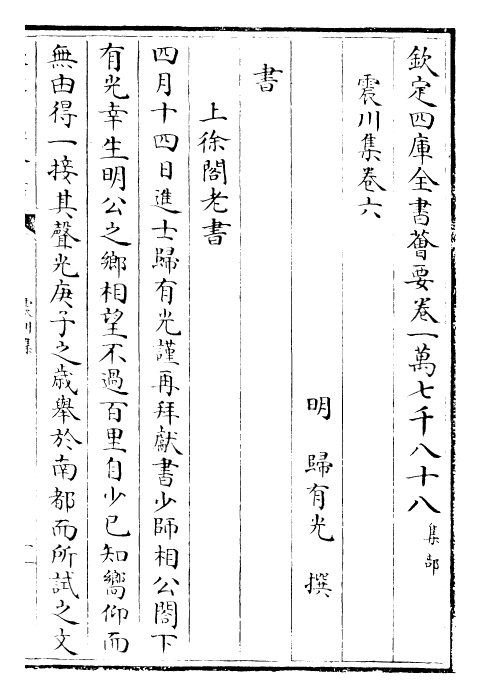 欽定四庫全書薈要卷一萬七千八十八 集部
震川集卷六
明 歸有光 撰
書
上徐閣老書
四月十四日進士歸有光謹再拜獻書少師相公閣下
有光幸生明公之鄉相望不過百里自少已知嚮仰而
無由得一接其聲光庚子之歲舉於南都而所試之文
震川集